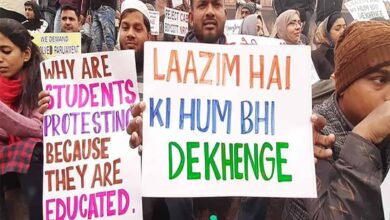 WE DEMAND
PARLIAMENT
REJECT CAB
WHY ARE
STUDENTS
PROTESTING
BECAUSE
THEY ARE
EDUCATED.
LAAZIM HAI
KI HUM BHI
DEKHENGE